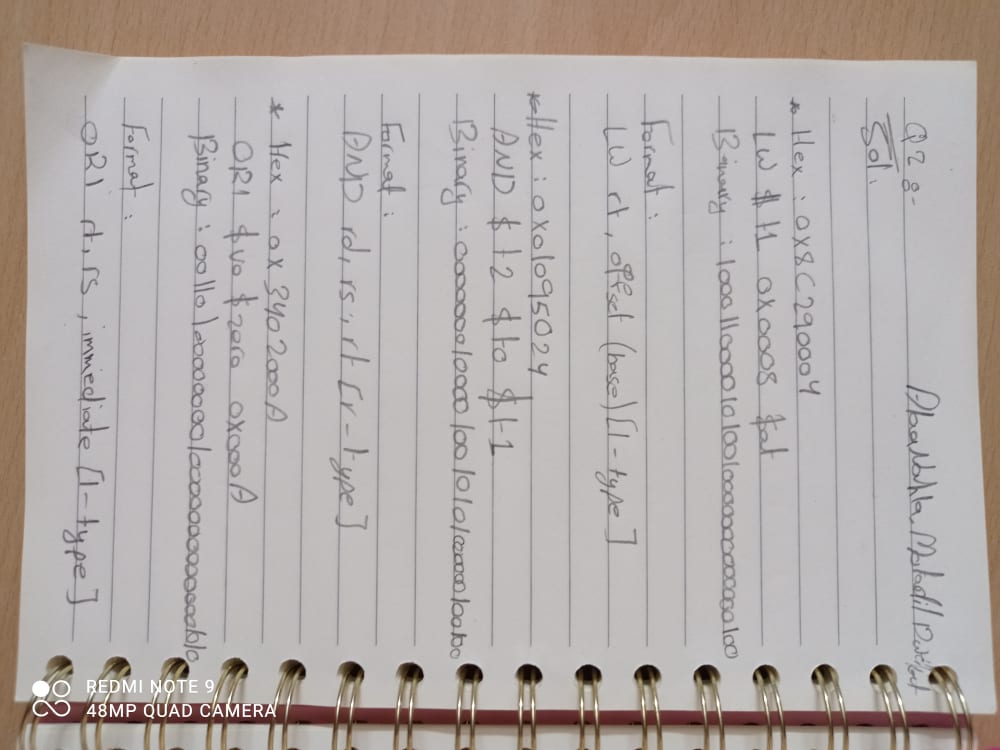 Q2 :-
Sol.
* Hex : 0x8C290004
LW $t1 0x0008 $at
Binary : 10001100001010010000000000000100
Format :
LW rt, offset (base) [I-type]
* Hex : 0x01095024
AND $t2 $t0 $t1
Binary : 00000001000010010101000000100100
Format :
AND rd, rs, rt [r-type]
* Hex : 0x3402000A
ORI $v0 $zero 0x000A
Binary : 00110100000000100000000000001010
Format :
ORI rt, rs, immediate [I-type]
REDMI NOTE 9
48MP QUAD CAMERA